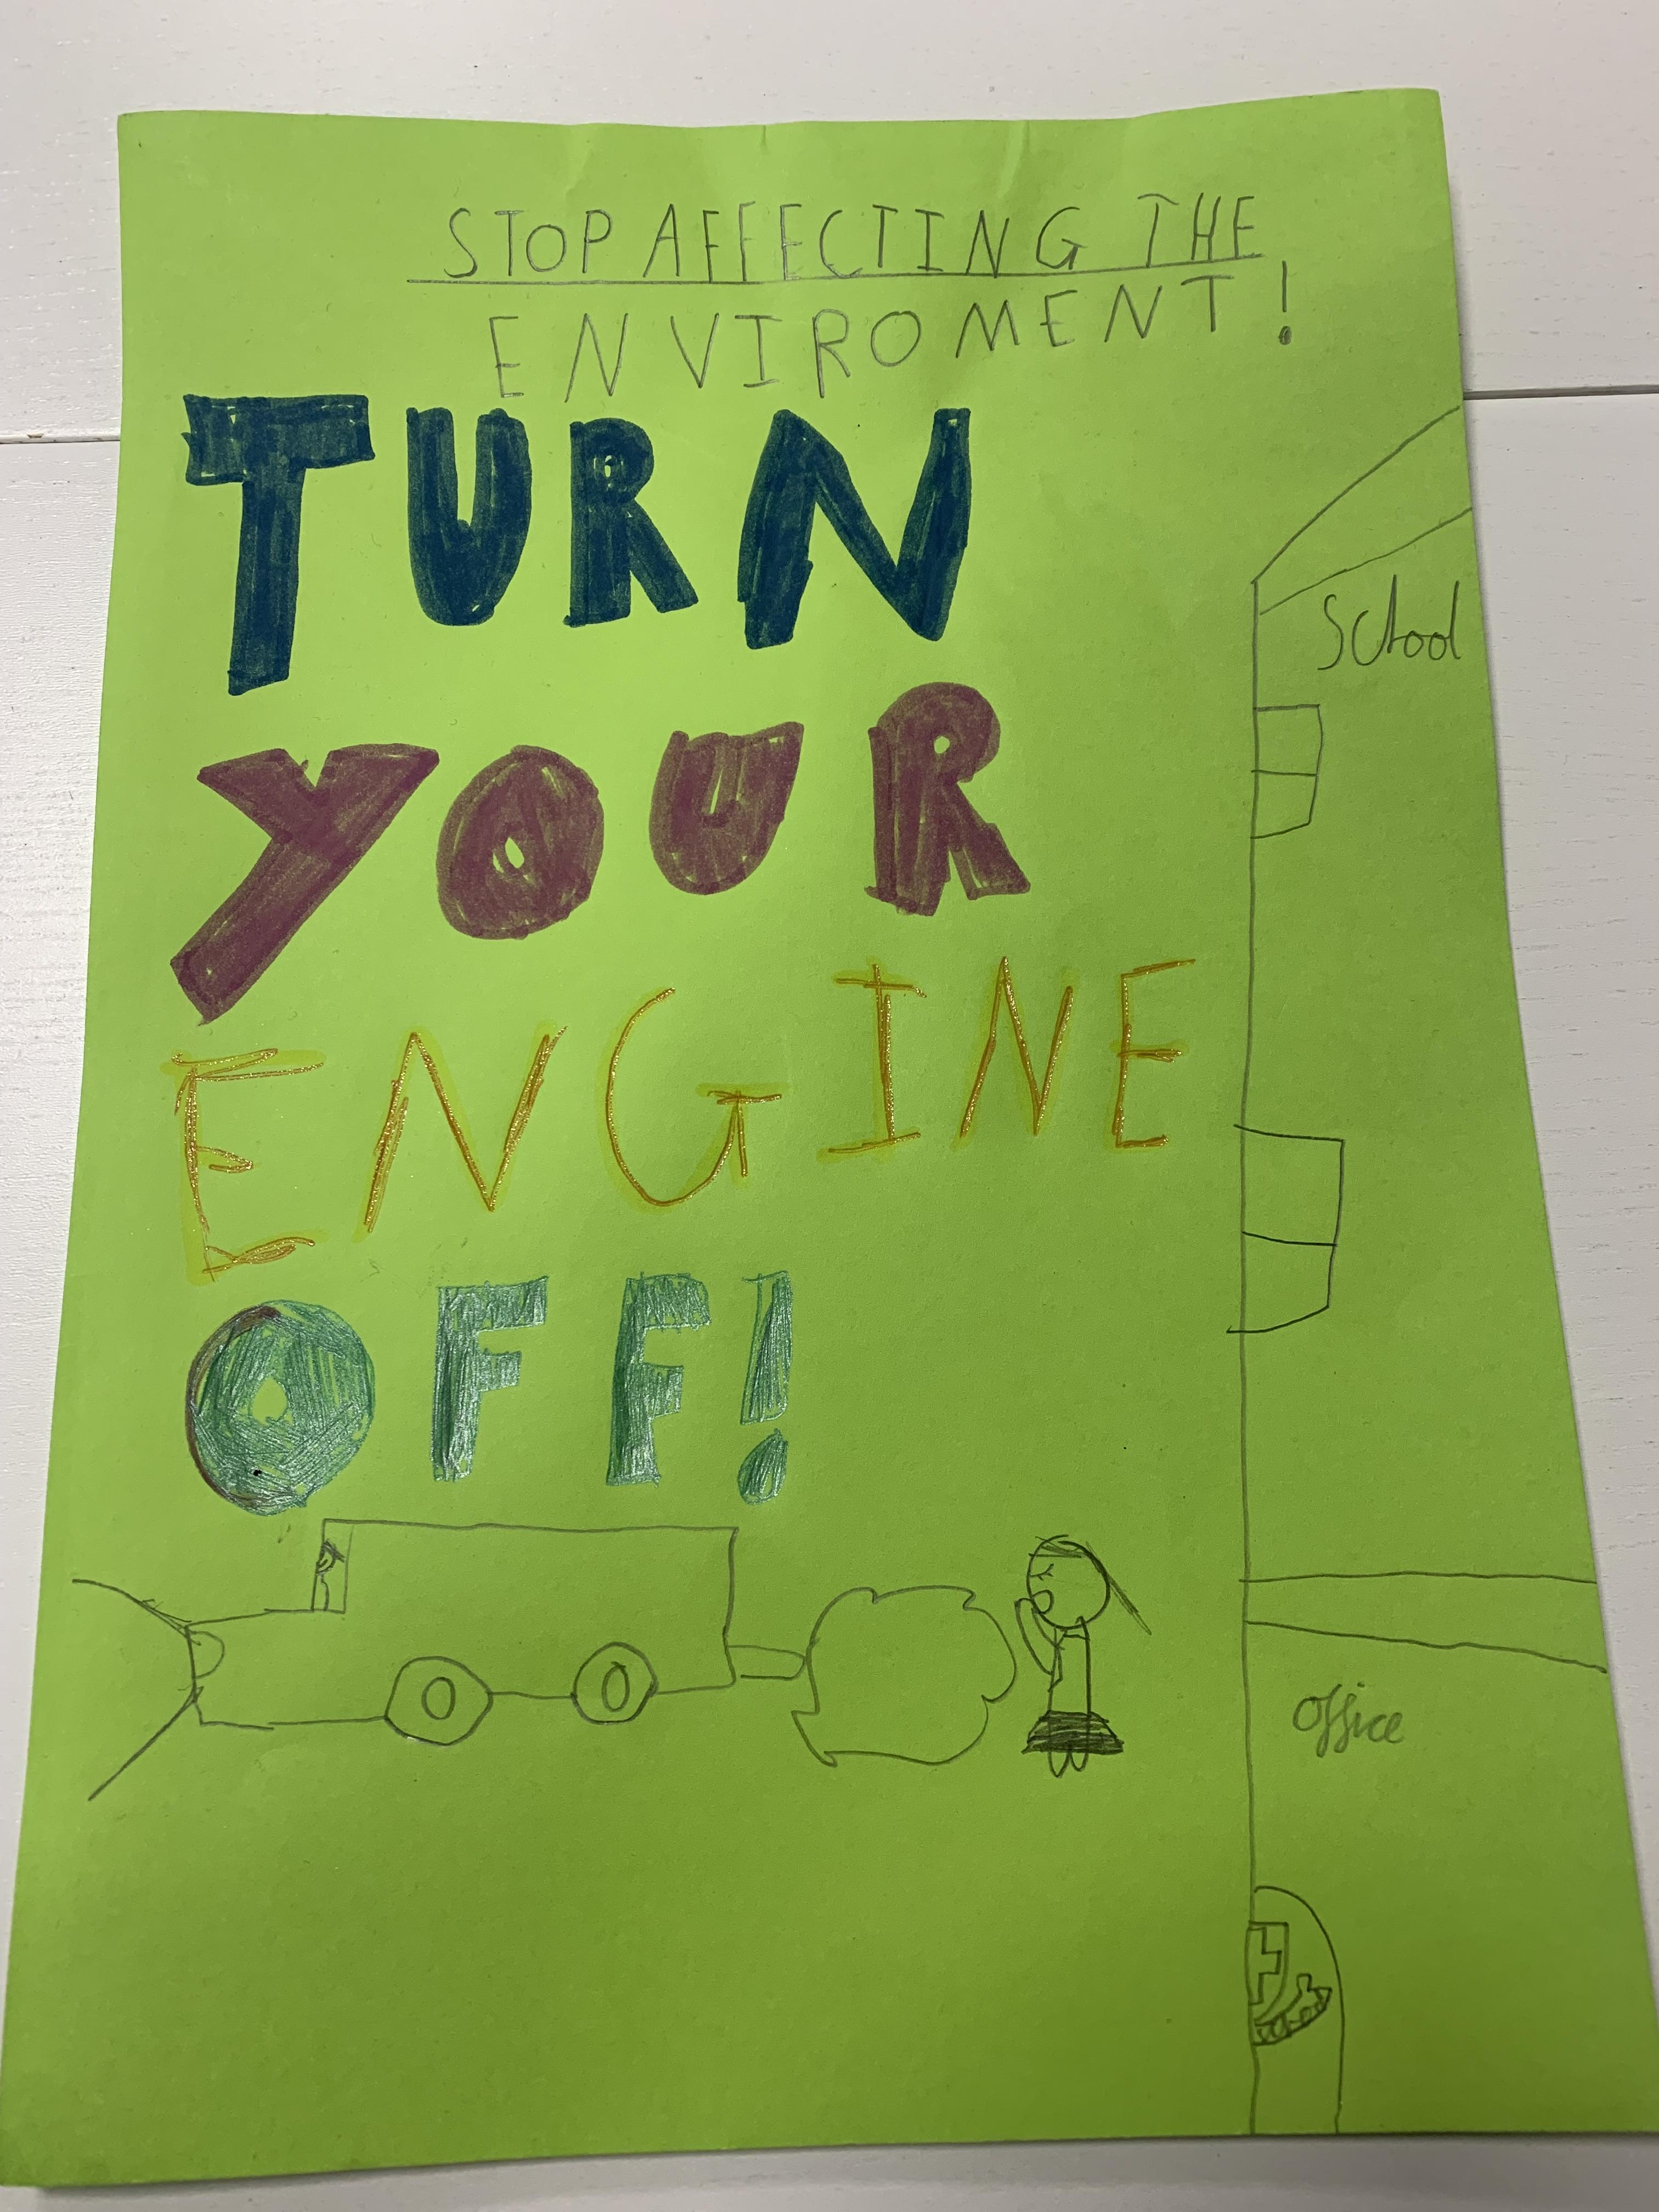 STOP AFFECTING THE
ENVIROMENT!
TURN
YOUR
ENGINE
OFF!
School
office